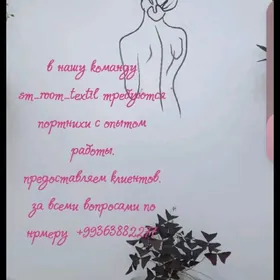 в нашу команду
sm_room_textil требуются
портнихи с опытом
работы.
предоставляем клиентов.
за всеми вопросами по
нрмеру